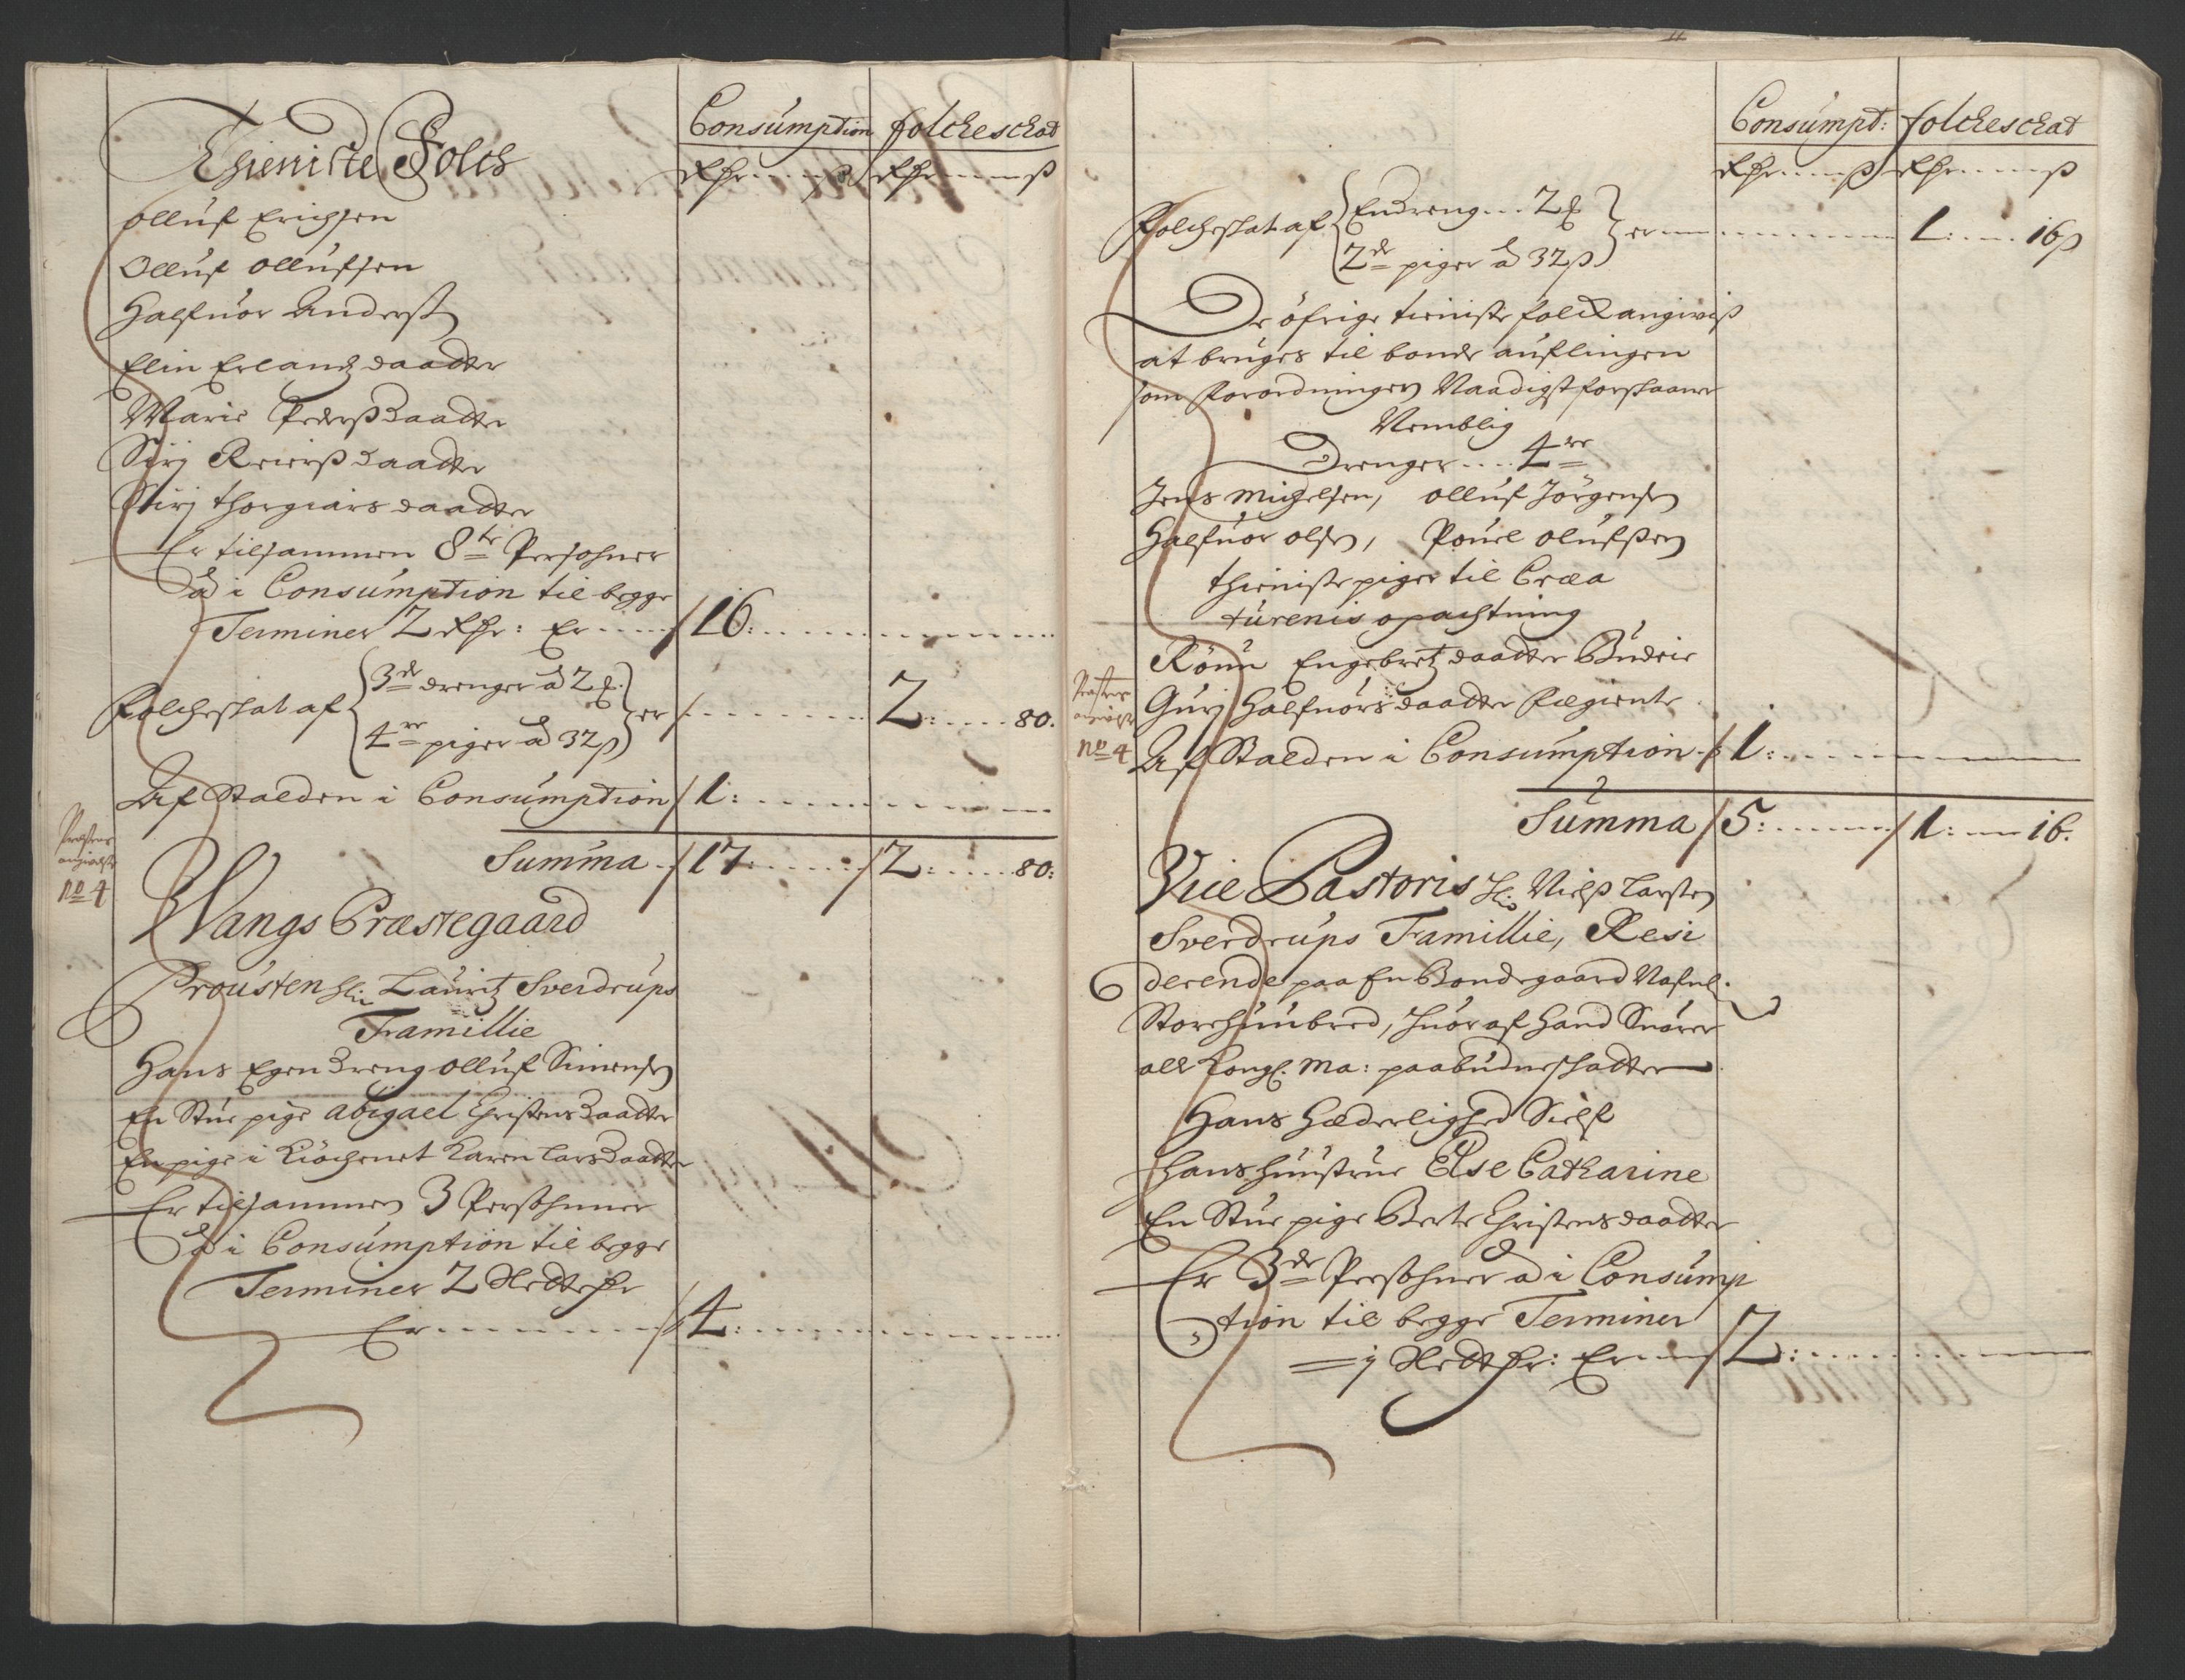 Consumption folcheschat
Rdr ß Rdr ß
Thieniste Folch
olluf Erichsen
Olluf ollufsen
Halfuor Anderß
Elin Erlandz daatter
Marie Pederßdaatter
Sirj Reierß daatter
Sirj thorgiärs daatter
Er tilsammen 8te Persohner
ad i Consumption til begge
Terminer 2 Rdr: Er 16:
Folcheskat af { 3de drenger ad 2 ℔. 4re piger ad 32 ß } er 2: 80.
Af Stalden i Consumption 1:
Summa 17: 2: 80:
Præstens
angivelse
no 4
Wangs Præstegaard
Proústen Hr Lauritz Sverdrups
Familliie
Hans Egen dreng olluf Simensen
En Stue pige Abigael Christensdaatter
En pige i Kiöchenet Karen Larsdaatter
Er tilsammen 3 Persohnner
ad i Consúmption til begge
Terminer 2 Slettedr
Er 4:
Consúmpt: folcheschat
Rdr ß Rdr ß
Folcheskat af { En dreng 2 ℔ 2de piger ad 32 ß } er 1: 16 ß
De öfrige tieniste folck angiviß
at bruges til bonde auflingen
som forordningen Naadigst forskaaner
Nemblig
Drenger 4re
Jens Michelsen, olluf Jörgensen
Halfuor olsen, Pouel olufßen
thieniste piger til Creea
turenis opachtning
Rönu Engebretz daatter Budeie
Præstens
angivelse
no 4
Gurj Halfuors daatter Fægiente
Af Stalden i Consúmption 1:
Summa 5: 1: 16.
Vice Pastoris Hr Nielß Larsen
Sverdrups Famillie, Resi
derende paa En Bondegaard Nafnl:
Storehúnbred, huoraf hand Suarer
alle Kongl. Ma: paabudne skatter
Hans Hæderlighed Sielf
hans huustrue Else Catharine
En Stue pige Berte Christens daatter
Er 3de Persohner ad i Consúmp
tion til begge Terminer
1 Slettdr: Er 2: